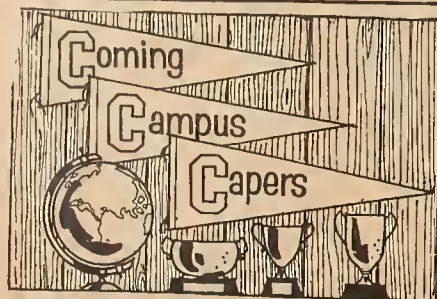 Coming
Campus
Capers